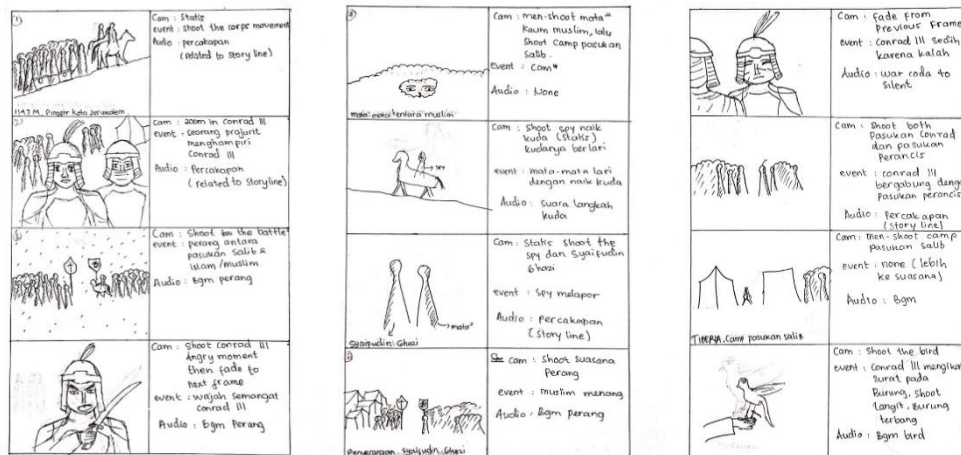 1
Cam : Statis
event : shoot the corps movement
Audio : percakapan
(related to story line)
1147 M, Pinggir Kota Jerusalem
Cam : zoom in Conrad III
event : seorang prajurit
menghampiri
Conrad III
Audio : Percakapan
(related to storyline)
Cam : Shoot the battle
event : perang antara
pasukan salib &
islam/muslim
Audio : Bgm perang
Cam : Shoot Conrad III
Angry moment
then fade to
next frame
event : wajah semangat
Conrad III
Audio : Bgm Perang
Cam : men-shoot mata²
Kaum muslim, lalu
Shoot Camp pasukan
Salib.
event : Cam*
Audio : None
mata-mata tentara muslim
spy
Cam : Shoot spy naik
kuda (statis)
kudanya berlari
event : mata-mata lari
dengan naik kuda
Audio : suara langkah
kuda
Cam : Statis shoot the
spy dan Syaifudin
Ghazi
event : Spy melapor
Audio : percakapan
(story line)
mata²
Syaifudin Ghazi
Cam : Shoot Suasana
Perang
event : muslim menang
Audio : Bgm perang
Penyerangan Syaifudin Ghazi
Cam : fade From
Previous Frame
event : Conrad III sedih
karena kalah
Audio : war coda to
silent
Cam : Shoot both
Pasukan Conrad
dan pasukan
Perancis
event : Conrad III
bergabung dengan
pasukan perancis
Audio : Percakapan
(story line)
Cam : men-shoot camp
pasukan salib
event : none (lebih
ke suasana)
Audio : Bgm
TIBERIA, Camp pasukan salib
Cam : Shoot the bird
event : Conrad III mengikat
Surat pada
Burung, Shoot
langit, Burung
terbang
Audio : Bgm bird